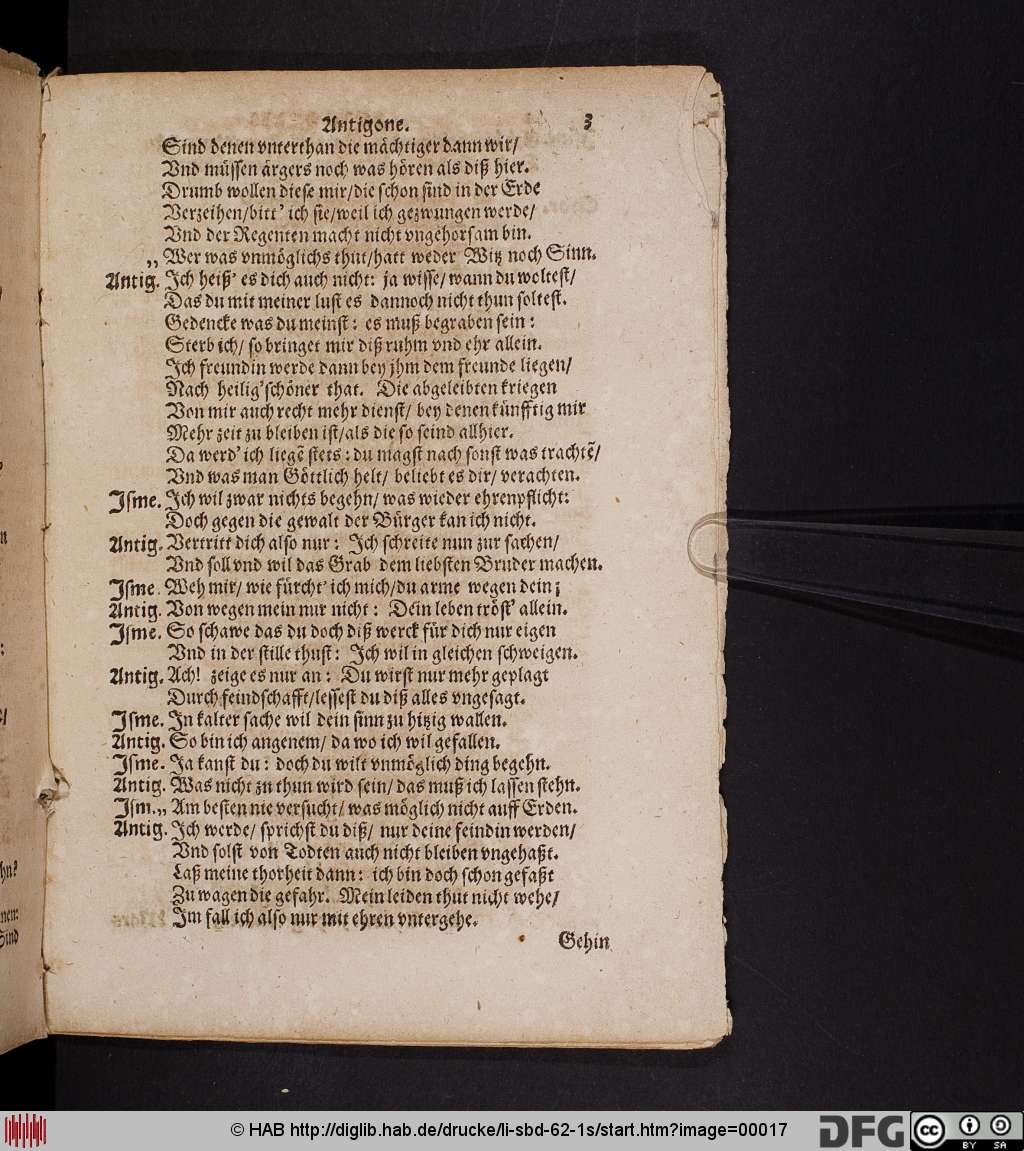 Antigone. 3
Sind denen vnterthan die mächtiger dann wir/
Vnd müssen ärgers noch was hören als diß hier.
Drumb wollen diese mir/die schon sind in der Erde
Verzeihen/bitt' ich sie/weil ich gezwungen werde/
Vnd der Regenten macht nicht vngehorsam bin.
„ Wer was vnmöglichs thut/hatt weder Witz noch Sinn.
Antig. Ich heiß' es dich auch nicht: ja wisse/ wann du woltest/
Das du mit meiner lust es dannoch nicht thun soltest.
Gedencke was du meinst: es muß begraben sein:
Sterb ich/ so bringet mir diß ruhm vnd ehr allein.
Ich freundin werde dann bey jhm dem freunde liegen/
Nach heilig'schöner that. Die abgeleibten kriegen
Von mir auch recht mehr dienst/ bey denen künfftig mir
Mehr zeit zu bleiben ist/als die so seind allhier.
Da werd' ich liegē stets: du magst nach sonst was trachtē/
Vnd was man Göttlich helt/ beliebt es dir/ verachten.
Isme. Ich wil zwar nichts begehn/ was wieder ehrenpflicht:
Doch gegen die gewalt der Bürger kan ich nicht.
Antig. Vertritt dich also nur: Ich schreite nun zur sachen/
Vnd soll vnd wil das Grab dem liebsten Bruder machen.
Isme. Weh mir/ wie fürcht' ich mich/du arme wegen dein;
Antig. Von wegen mein nur nicht: Dein leben tröst' allein.
Isme. So schawe das du doch diß werck für dich nur eigen
Vnd in der stille thust: Ich wil in gleichen schweigen.
Antig. Ach! zeige es nur an: Du wirst nur mehr geplagt
Durch feindschafft/lessest du diß alles vngesagt.
Isme. In kalter sache wil dein sinn zu hitzig wallen.
Antig. So bin ich angenem/ da wo ich wil gefallen.
Isme. Ja kanst du: doch du wilt vnmöglich ding begehn.
Antig. Was nicht zu thun wird sein/ das muß ich lassen stehn.
Ism. „ Am besten nie versucht/ was möglich nicht auff Erden.
Antig. Ich werde/ sprichst du diß/ nur deine feindin werden/
Vnd solst von Todten auch nicht bleiben vngehaßt.
Laß meine thorheit dann: ich bin doch schon gefaßt
Zu wagen die gefahr. Mein leiden thut nicht wehe/
Im fall ich also nur mit ehren vntergehe.
Gehin
hn?
nen:
Sind
© HAB http://diglib.hab.de/drucke/li-sbd-62-1s/start.htm?image=00017
DFG
cc BY SA